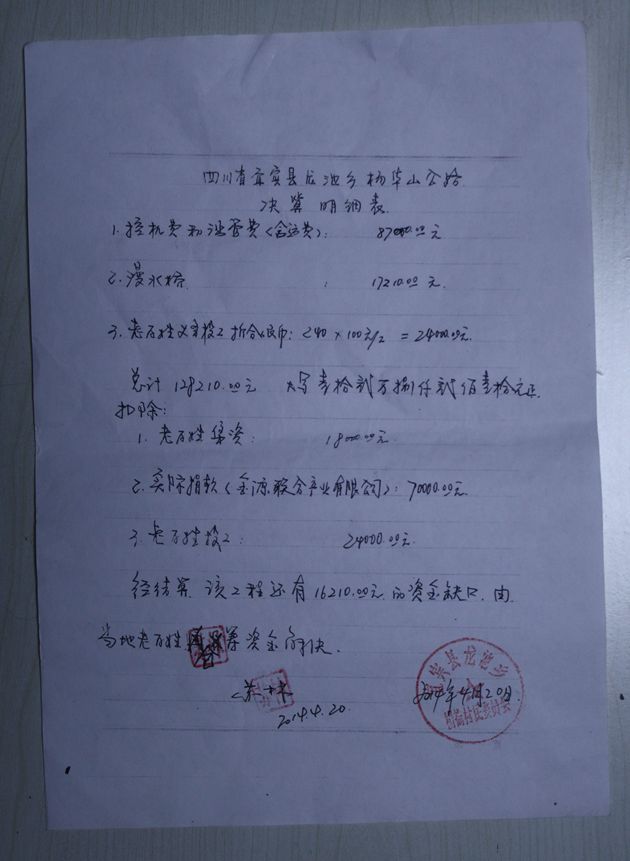 四川省宜宾县龙池乡杨华山公路
决算明细表
1.挖机费和涵管费(含运费): 87000.00元
2.漫水桥 : 17210.00元
3.老百姓义务投工折合人民币: 240×100元/工=24000.00元
总计128210.00元 大写壹拾贰万捌仟贰佰壹拾元正
扣除:
1.老百姓集资: 18000.00元
2.实际捐款(金源联合产业有限公司): 70000.00元
3.老百姓投工: 24000.00元
经结算 该工程还有16210.00元的资金缺口.由
当地老百姓 筹资金解决.
2014.4.20
2014年4月20日
宜宾县龙池乡
村民委员会